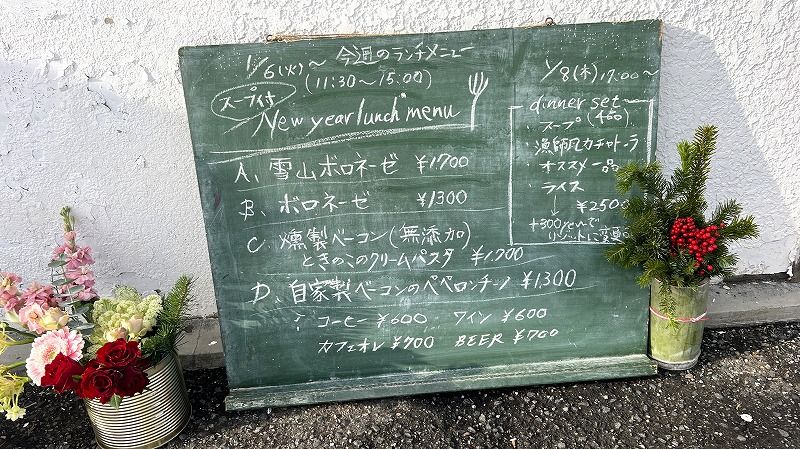 今週のランチメニュー
1/6(火)〜
(11:30〜15:00)
スープ付
New year lunch menu
A、雪山ボロネーゼ ¥1.700
B、ボロネーゼ ¥1300
C、燻製ベーコン(無添加)
ときのこのクリームパスタ ¥1.700
D、自家製ベーコンのペペロンチーノ ¥1300
コーヒー ¥600 ワイン ¥600
カフェオレ ¥700 BEER ¥700
1/8(木)17:00〜
dinner set
・スープ(400)
・漁師風カチャトーラ
・オススメ一品
・ライス
↓ ¥2500
+300yenで
リゾットに変更